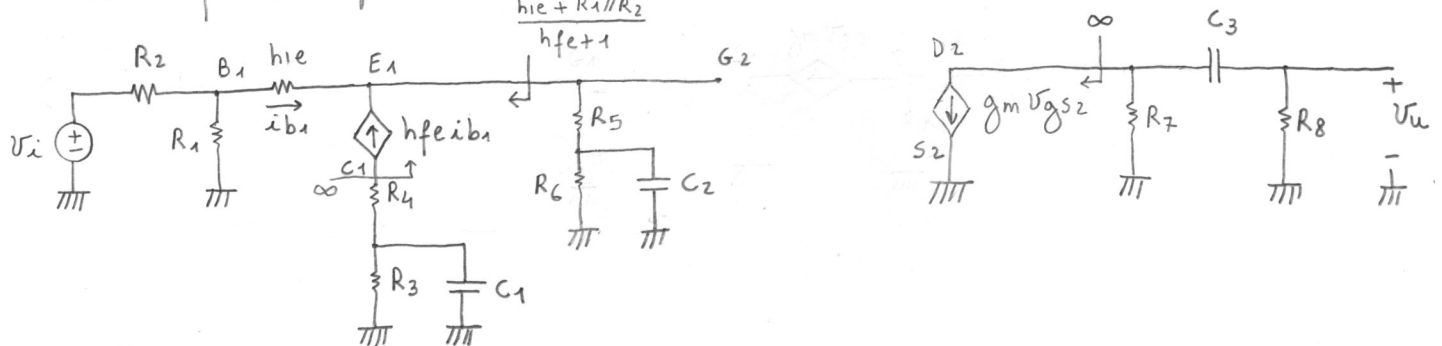 hie + R1//R2
hfe+1
R2
B1
hie
E1
G2
vi
R1
ib1
hfeib1
C1
∞
R4
R3
C1
R5
R6
C2
D2
∞
C3
gm vgs2
S2
R7
R8
+
vu
-